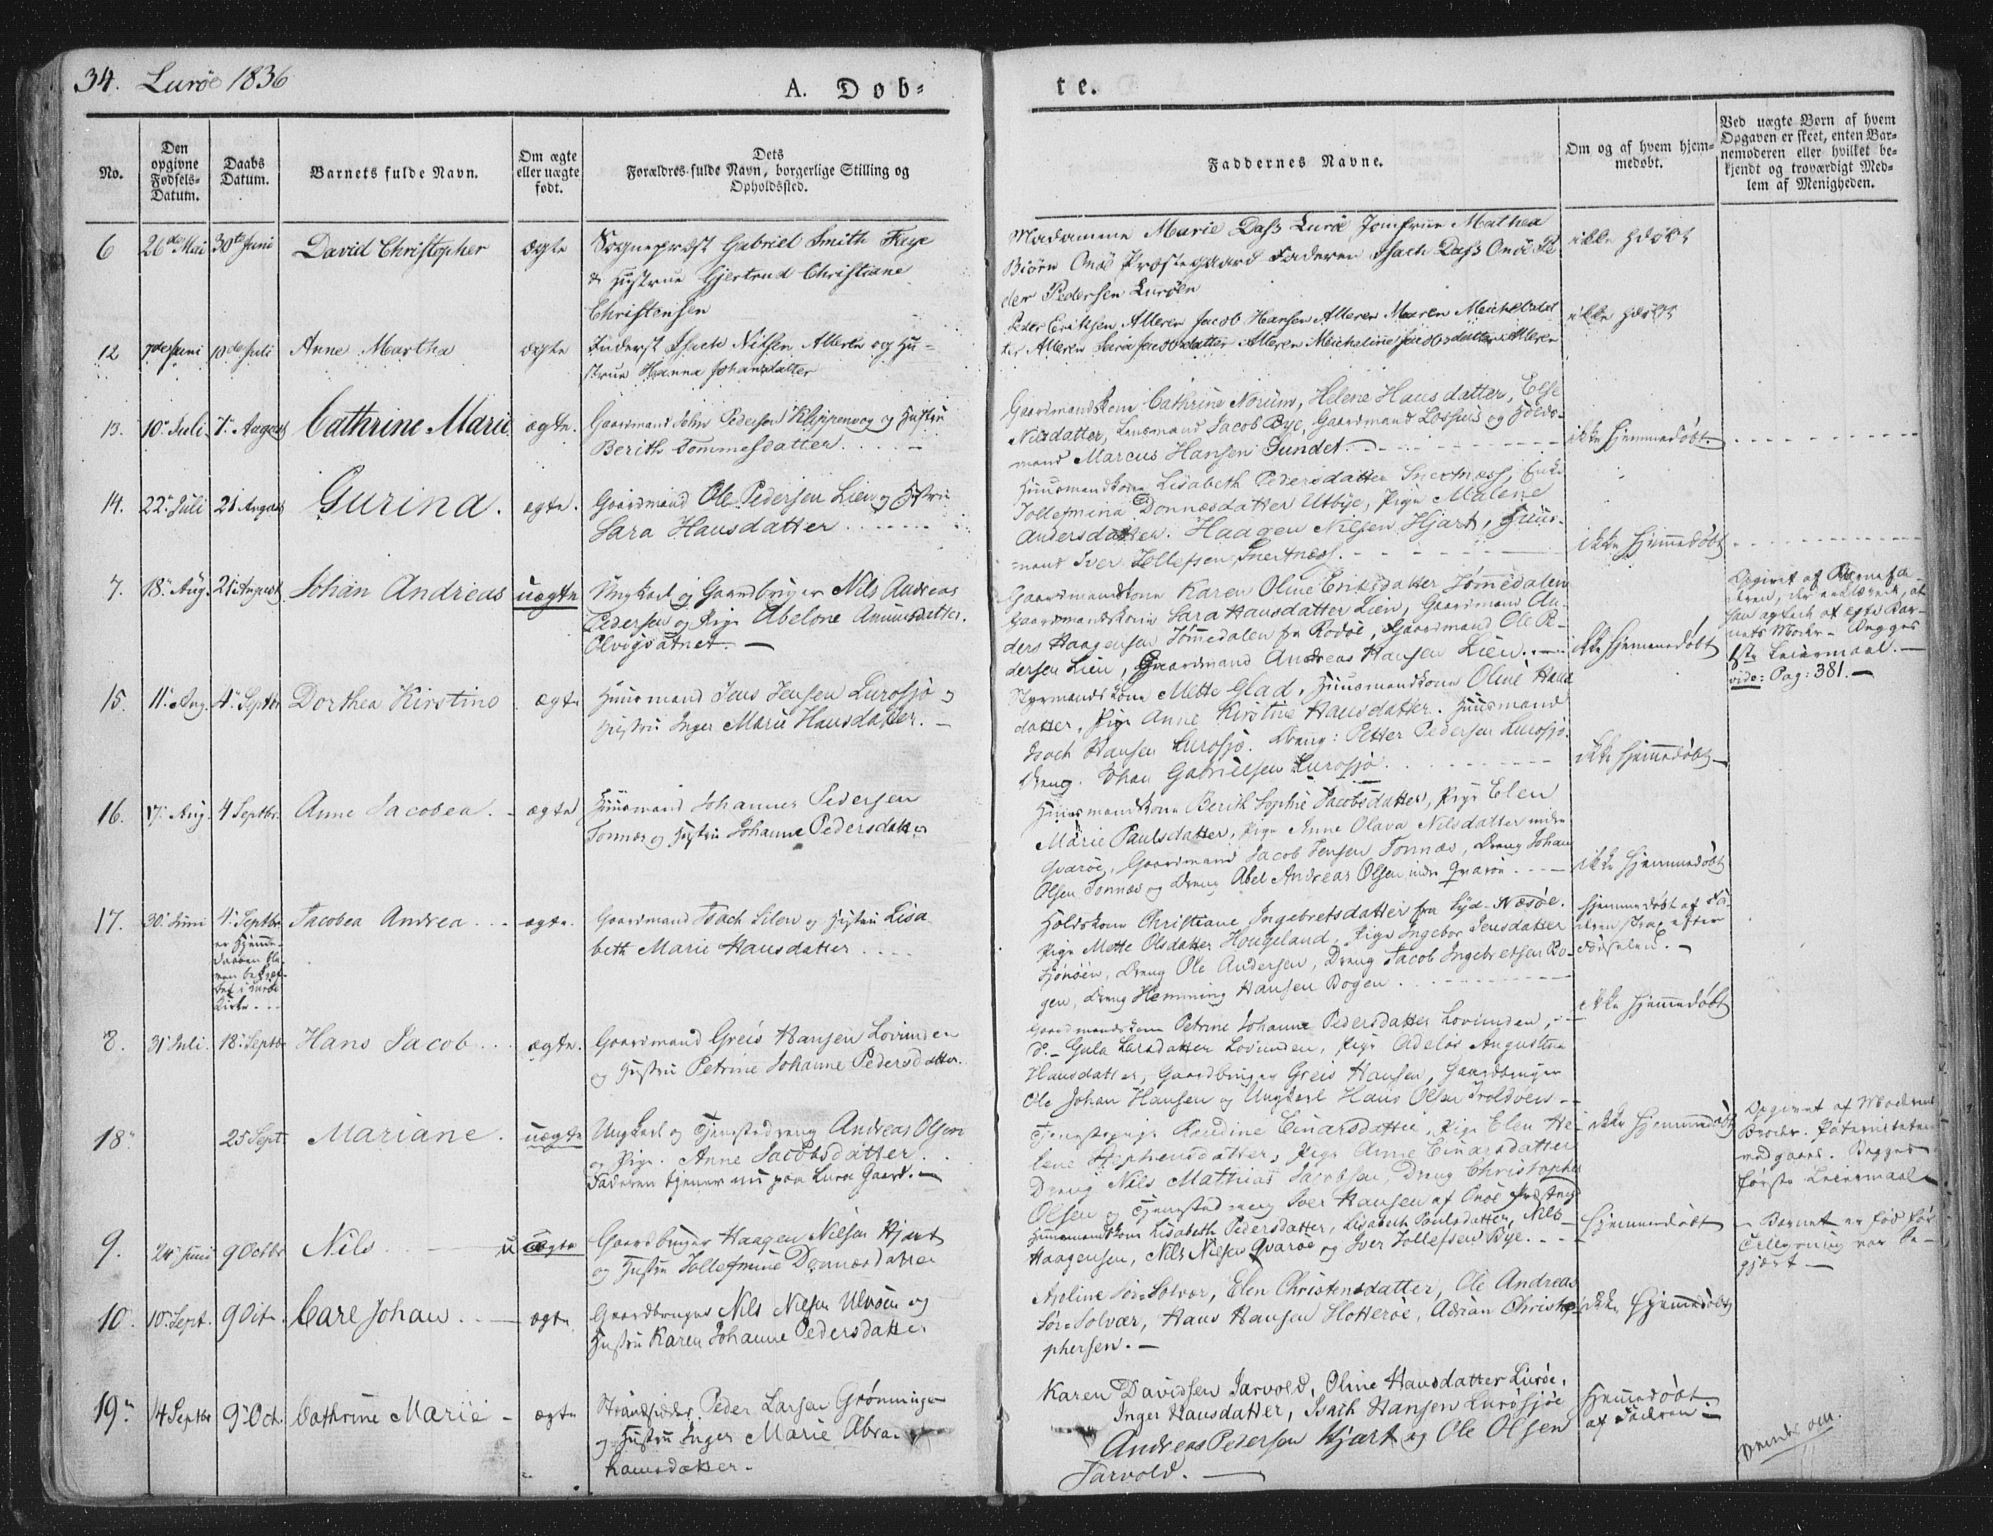 34. Lurøe 1836
A. Døb-
te.
No.
Den opgivne Fødsels-Datum.
Daabs Datum.
Barnets fulde Navn.
Om ægte eller uægte født.
Dets Forældres fulde Navn, borgerlige Stilling og Opholdssted.
Faddernes Navne.
Om og af hvem hjemmedøbt.
Ved uægte Børn af hvem Opgaven er skeet, enten Barnemoderen eller hvilket bekjendt og troværdigt Medlem af Menigheden.
6 26de Mai 30te Juni David Christopher ægte Sognepræst Gabriel Smith Faye
& Hustrue Gjertrud Christiane
Christensen
Madamme Marie Dass Lurøe Jomfrue Mathea
Biørn Onøe Præstegaard Faderen Isach Dass Onøe Pe-
der Pedersen Lurøen
ikke hdøbt
12 7de Juni 10de Juli Anne Martha ægte Inderst Isach Nilsen Alleren og Hu-
strue Hanna Johansdatter
Peder Eriksen Alleren Jacob Hansen Alleren Maren Michelsdat
ter Alleren Sara Jacobsdatter Alleren Micheline Jacobsdatter Alleren
ikke hdøbt
13. 10. Juli 7. August Cathrine Marie ægte. Gaardmand John Pedersen Kleppenvog og Hustru
Berith Tommesdatter.
Gaardmandskone Cathrine Norum, Helene Hansdatter, Else
Nilsdatter, Lensmand Jacob Bye, Gaardmand
mand Marcus Hansen Sundet.
ikke hjemmedøbt.
14. 22. Juli 21 August Gurina. ægte. Gaardmand Ole Pedersen Lien og Hustru
Sara Hansdatter
Huusmandskone Lisabeth Pedersdatter
Tollefmina Donnæsdatter Utbye, Pige Malene
Andersdatter. Haagen Nilsen Hjart, Huus-
mand Iver Tollefsen
ikke hjemmedøbt
7. 18. Aug. 21 August Johan Andreas uægte Ungkarl og Gaardbruger Nils Andreas
Pedersen og Pige Abelone Amundsdatter.
Olvigvatnet.
Gaardmandskone Karen Oline Eriksdatter Tømmedalen
Gaardmandskone Sara Hansdatter Lien, Gaardmand An-
ders Haagensen Tømmedalen fra Rødøe, Gaardmand Ole Pe-
dersen Lien, Gaardmand Andreas Hansen Lien.
ikke hjemmedøbt
Opgivet af Barnefa-
deren, der erklærede, at
han agtede at egte Bar-
nets Moder - Begges
1ste Leiermaal.
vide: Pag: 381.
15. 11. Aug. 4. Septbr Dorthea Kirstine ægte Huusmand Jens Jensen Lurøsjø og
Hustru Inger Marie Hansdatter.
Styrmandskone Mette Glad, Huusmandskone Oline Hans
datter, Pige Anne Kirstine Hansdatter. Huusmand
Isach Hansen Lurøsjø. Dreng: Petter Pedersen Lurøsjø.
Dreng. Johan Gabrielsen Lurøsjø.
ikke hjemmedøbt
16. 17. Aug. 4 Septbr. Anne Jacobea. ægte Huusmand Johannes Pedersen
Tonnæs og Hustru Johanna Pedersdatter
Huusmandskone Berith Sophie Jacobsdatter, Pige Elen
Marie Paulsdatter, Pige Anne Olava Nilsdatter indre
Qvarøe, Gaardmand Jacob Jensen Tonnæs, Dreng Johan
Olsen Tonnæs og Dreng Abel Andreas Olsen indre Qvarøe.
ikke hjemmedøbt
17. 30. Juni 4. Septbr. Jacobea Andrea ægte. Gaardmand Isach Silen og Hustru Lisa
beth Marie Hansdatter
er Hjemme-
daaben ble-
ven bekræf-
tet i Lurøe
Kirke.
Christiane Ingebretsdatter fra Syd-Næsøe.
Pige Mette Olsdatter Hougeland, Pige Ingebor Jensdatter
Dreng Ole Andersen, Dreng Jacob Ingebretsen Bo-
gen, Dreng Hemming Hansen Bogen
hjemmedøbt af Fa-
deren strax efter
Fødselen.
8. 31. Juli. 18. Septbr Hans Jacob ægte. Gaardmand Greis Hansen Lovunden
og Hustru Petrine Johanne Pedersdatter.
Gaardmandskone Petrine Johanne Pedersdatter Lovunden,
do - Gula Larsdatter Lovunden, Pige Adelös Augustina
Hansdatter, Gaardbruger Greis Hansen, Gaardbruger
Ole Johan Hansen og Ungkarl Hans Olsen
ikke hjemmedøbt
18. 25 Sept. Mariane. uægte Ungkarl og Tjenestedreng Andreas Olsen
og Pige. Anne Jacobsdatter.
Faderen tjener nu paa Lurøe Gaard.
Tjenestepige Einarsdatter, Pige Elen He-
lene Stephensdatter, Pige Anne Einarsdatter
Dreng Nils Mathias Jacobsen, Dreng Christopher
Olsen og Tjenestedreng Iver Hansen af Onøe Præstegd
ikke hjemmedøbt
Opgivet af Moderens
Broder. Paterniteten
vedgaaes. Begges
første Leiermaal
9. 24. Juni 9 Octbr Nils uægte Gaardbruger Haagen Nielsen Hjart
og Hustru Tollefmine Donnæsdatter
Huusmandskone Lisabeth Pedersdatter, Lisabeth Poulsdatter, Nils
Haagensen, Nils Nielsen Qvarøe og Iver Tollefsen Bye.
hjemmedøbt
- Barnet er fød før
Trilysning var be-
gjært
10. 10. Sept. 9 Oct. Carl Johan ægte Gaardbruger Nils Nielsen Ulvøen og
Hustru Karen Johanne Pedersdatter
Ajoline Sør-Solvær, Elen Christensdatter, Ole Andreas
Sør-Solvær, Hans Hansen Slotterøe, Adrian Christo-
phersen.
ikke hjemmedøbt
19. 14 Septbr 9. Oct. Cathrine Marie ægte Strandsidder Peder Larsen Grønningen
og Hustru Inger Marie Abra-
hamsdatter.
Karen Davidsen Jarvold, Oline Hansdatter Lurøe,
Inger Hansdatter, Isach Hansen Lurøsjøe
Andreas Pedersen Hjart og Ole Olsen
Jarvold.
hjemmedøbt
af Faderen
Vende om.